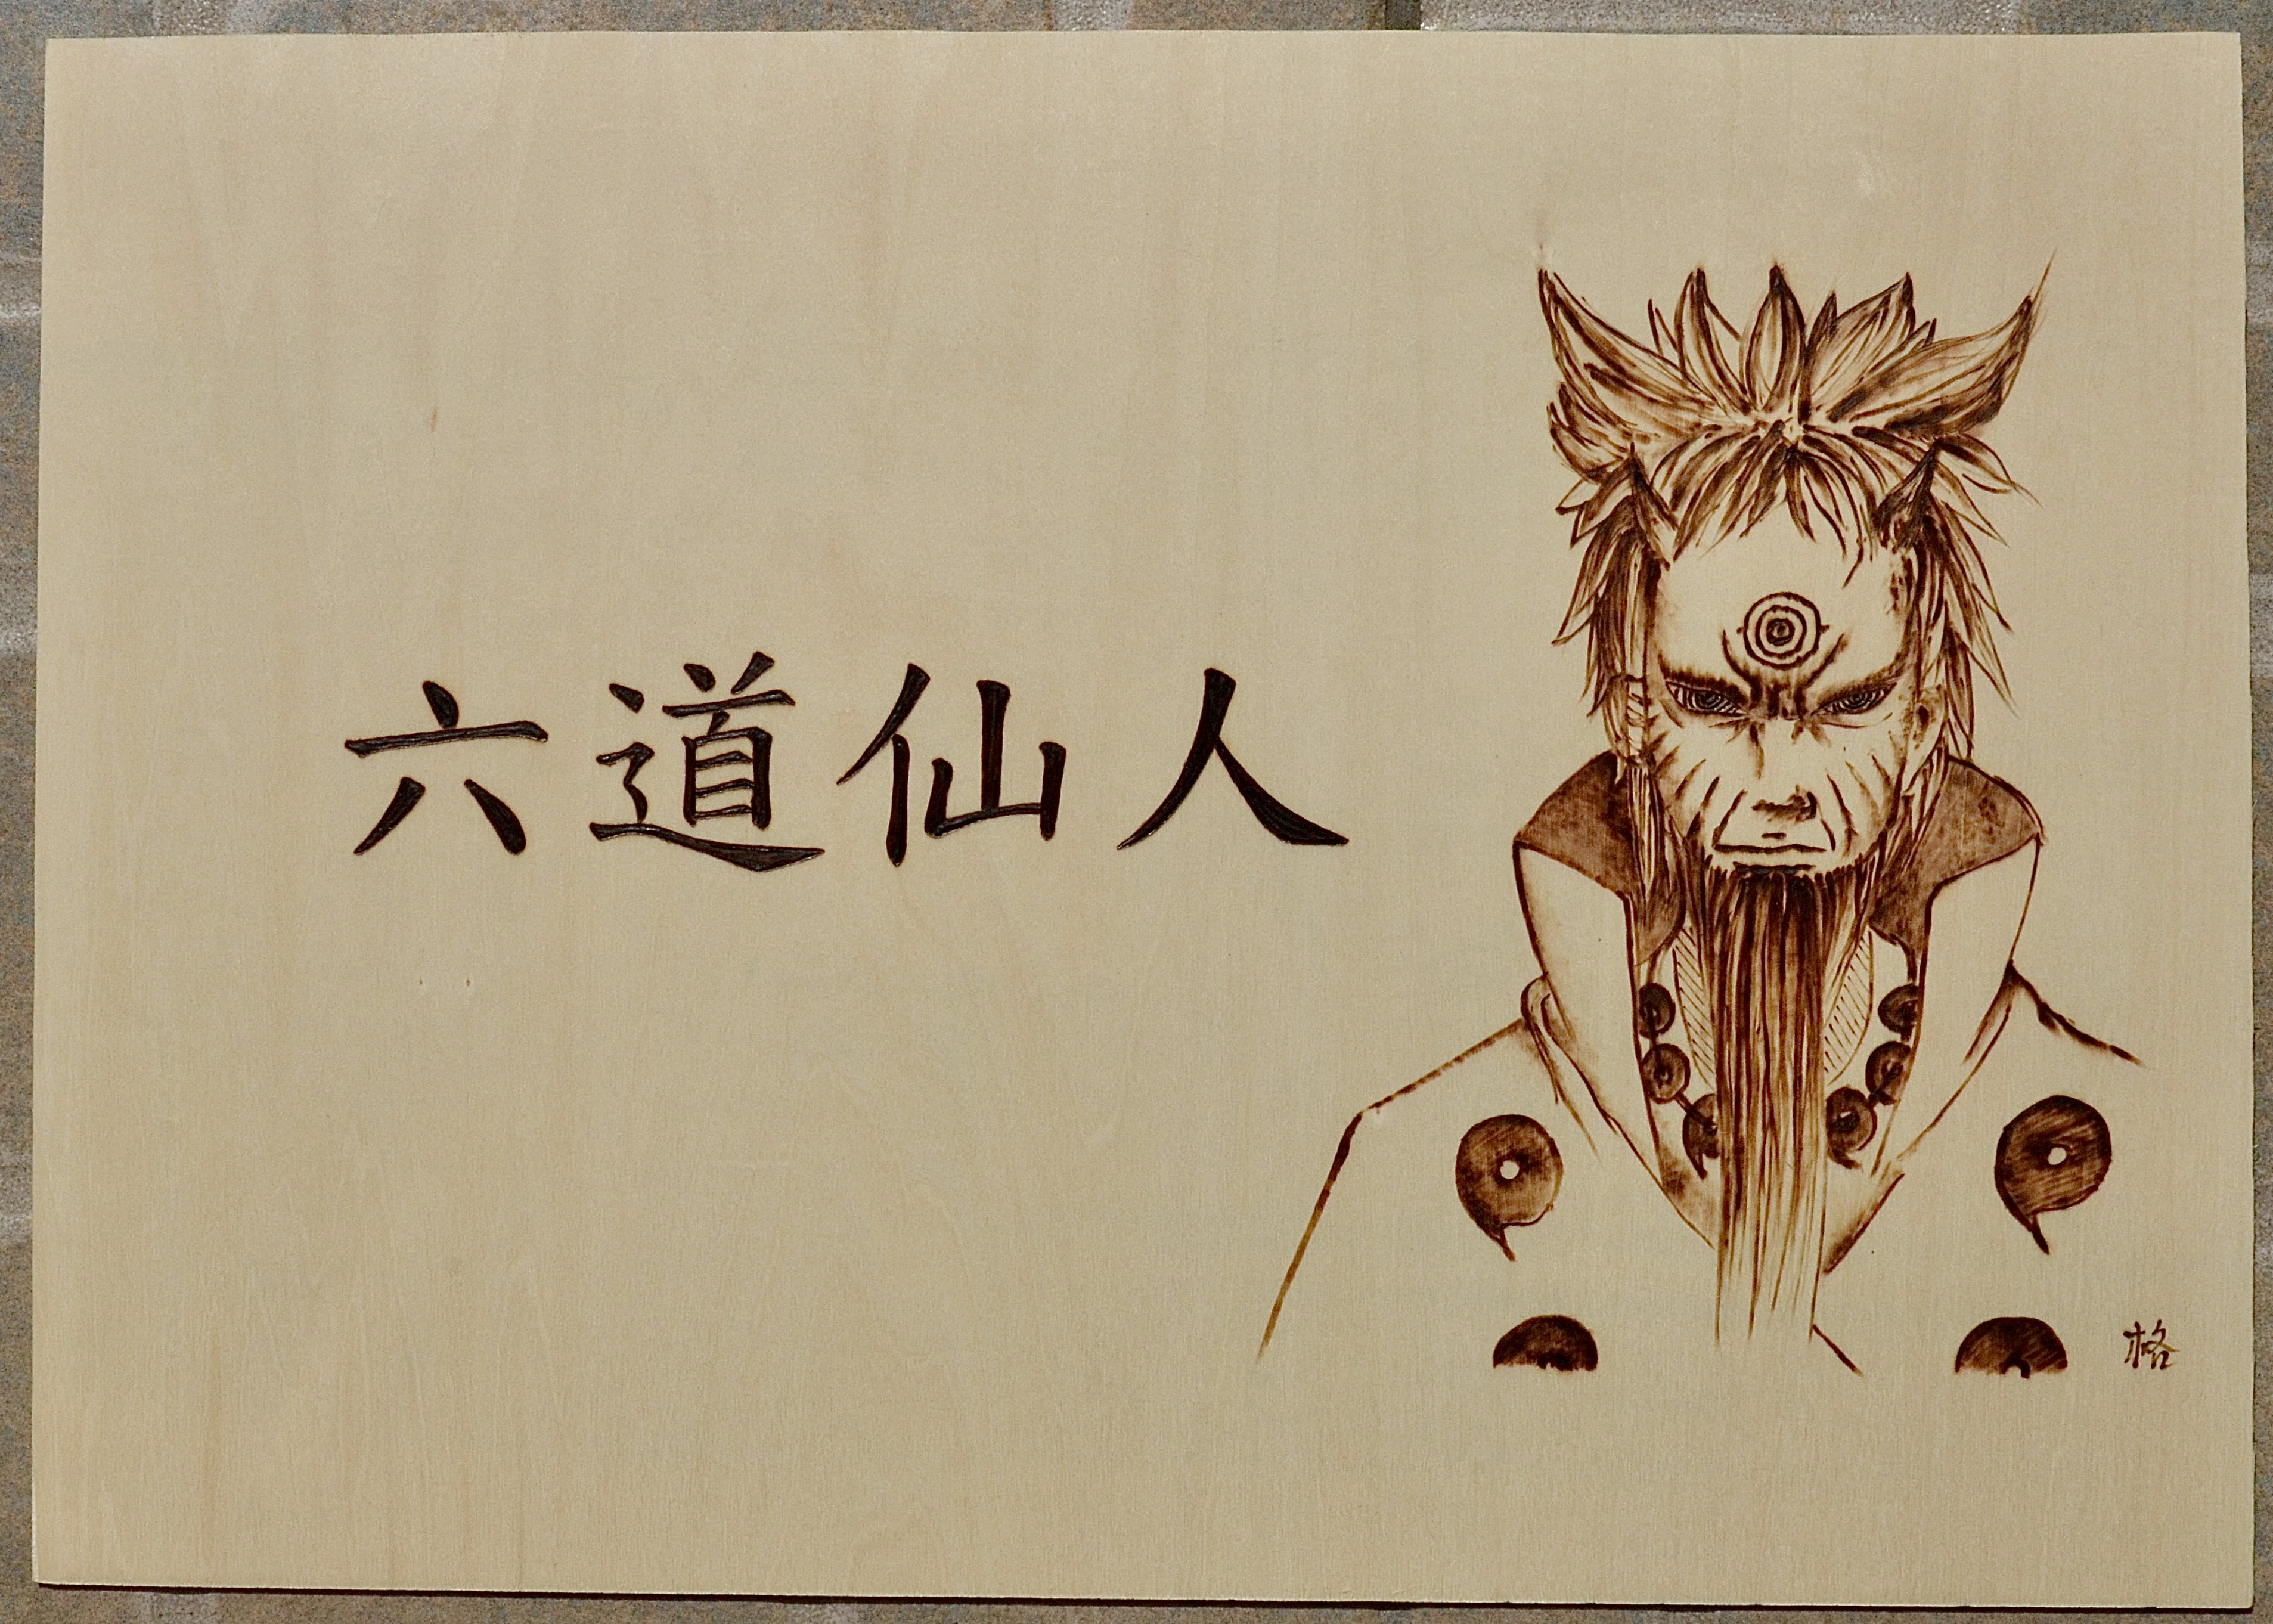 六道仙人
格